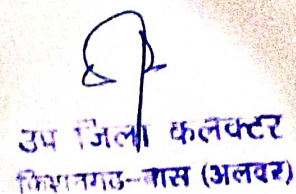 उप जिला कलक्टर
किशनगढ-बास (अलवर)